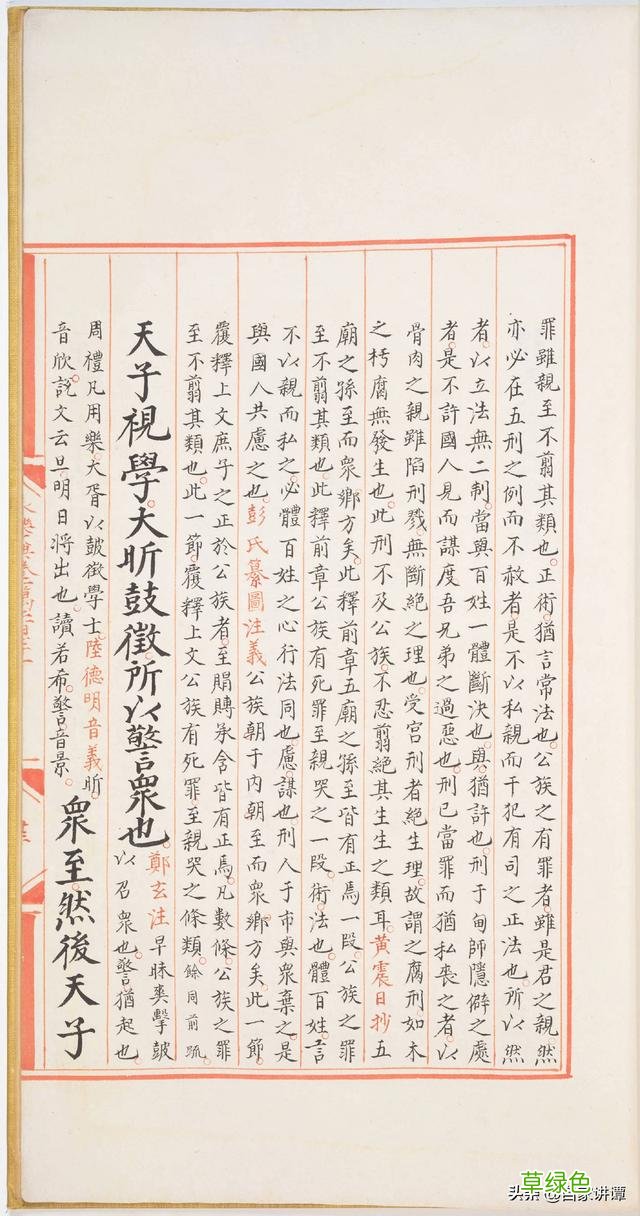 罪雖親至不翦其類也正術猶言常法也公族之有罪者雖是君之親然
亦必在五刑之例而不赦者是不以私親而干犯有司之正法也所以然
者以立法無二制當與百姓一體斷決也與猶許也刑于甸師隱僻之處
者是不許國人見而謀度吾兄弟之過惡也刑已當罪而猶私喪之者以
骨肉之親雖陷刑戮無斷絕之理也受宮刑者絕生理故謂之腐刑如木
之朽腐無發生也此刑不及公族不忍翦絕其生生之類耳黃震日抄五
廟之孫至而衆鄉方矣此釋前章五廟之孫至皆有正焉一段公族之罪
至不翦其類也此釋前章公族有死罪至親哭之一段術法也體百姓言
不以親而私之必體百姓之心行法同也慮謀也刑人于市與衆棄之是
與國人共慮之也彭氏纂圖注義公族朝于內朝至而衆鄉方矣此一節
覆釋上文庶子之正於公族者至賵賻承含皆有正焉凡數條公族之罪
至不翦其類也此一節覆釋上文公族有死罪至親哭之條類餘同前䟽
天子視學大昕鼓徵所以警衆也鄭玄注早昧爽擊鼓
以召衆也警猶起也
周禮凡用樂大胥以鼓徵學士陸德明音義昕
音欣說文云旦明日將出也讀若希警音景衆至然後天子
草绿色
头条 @百家讲谭